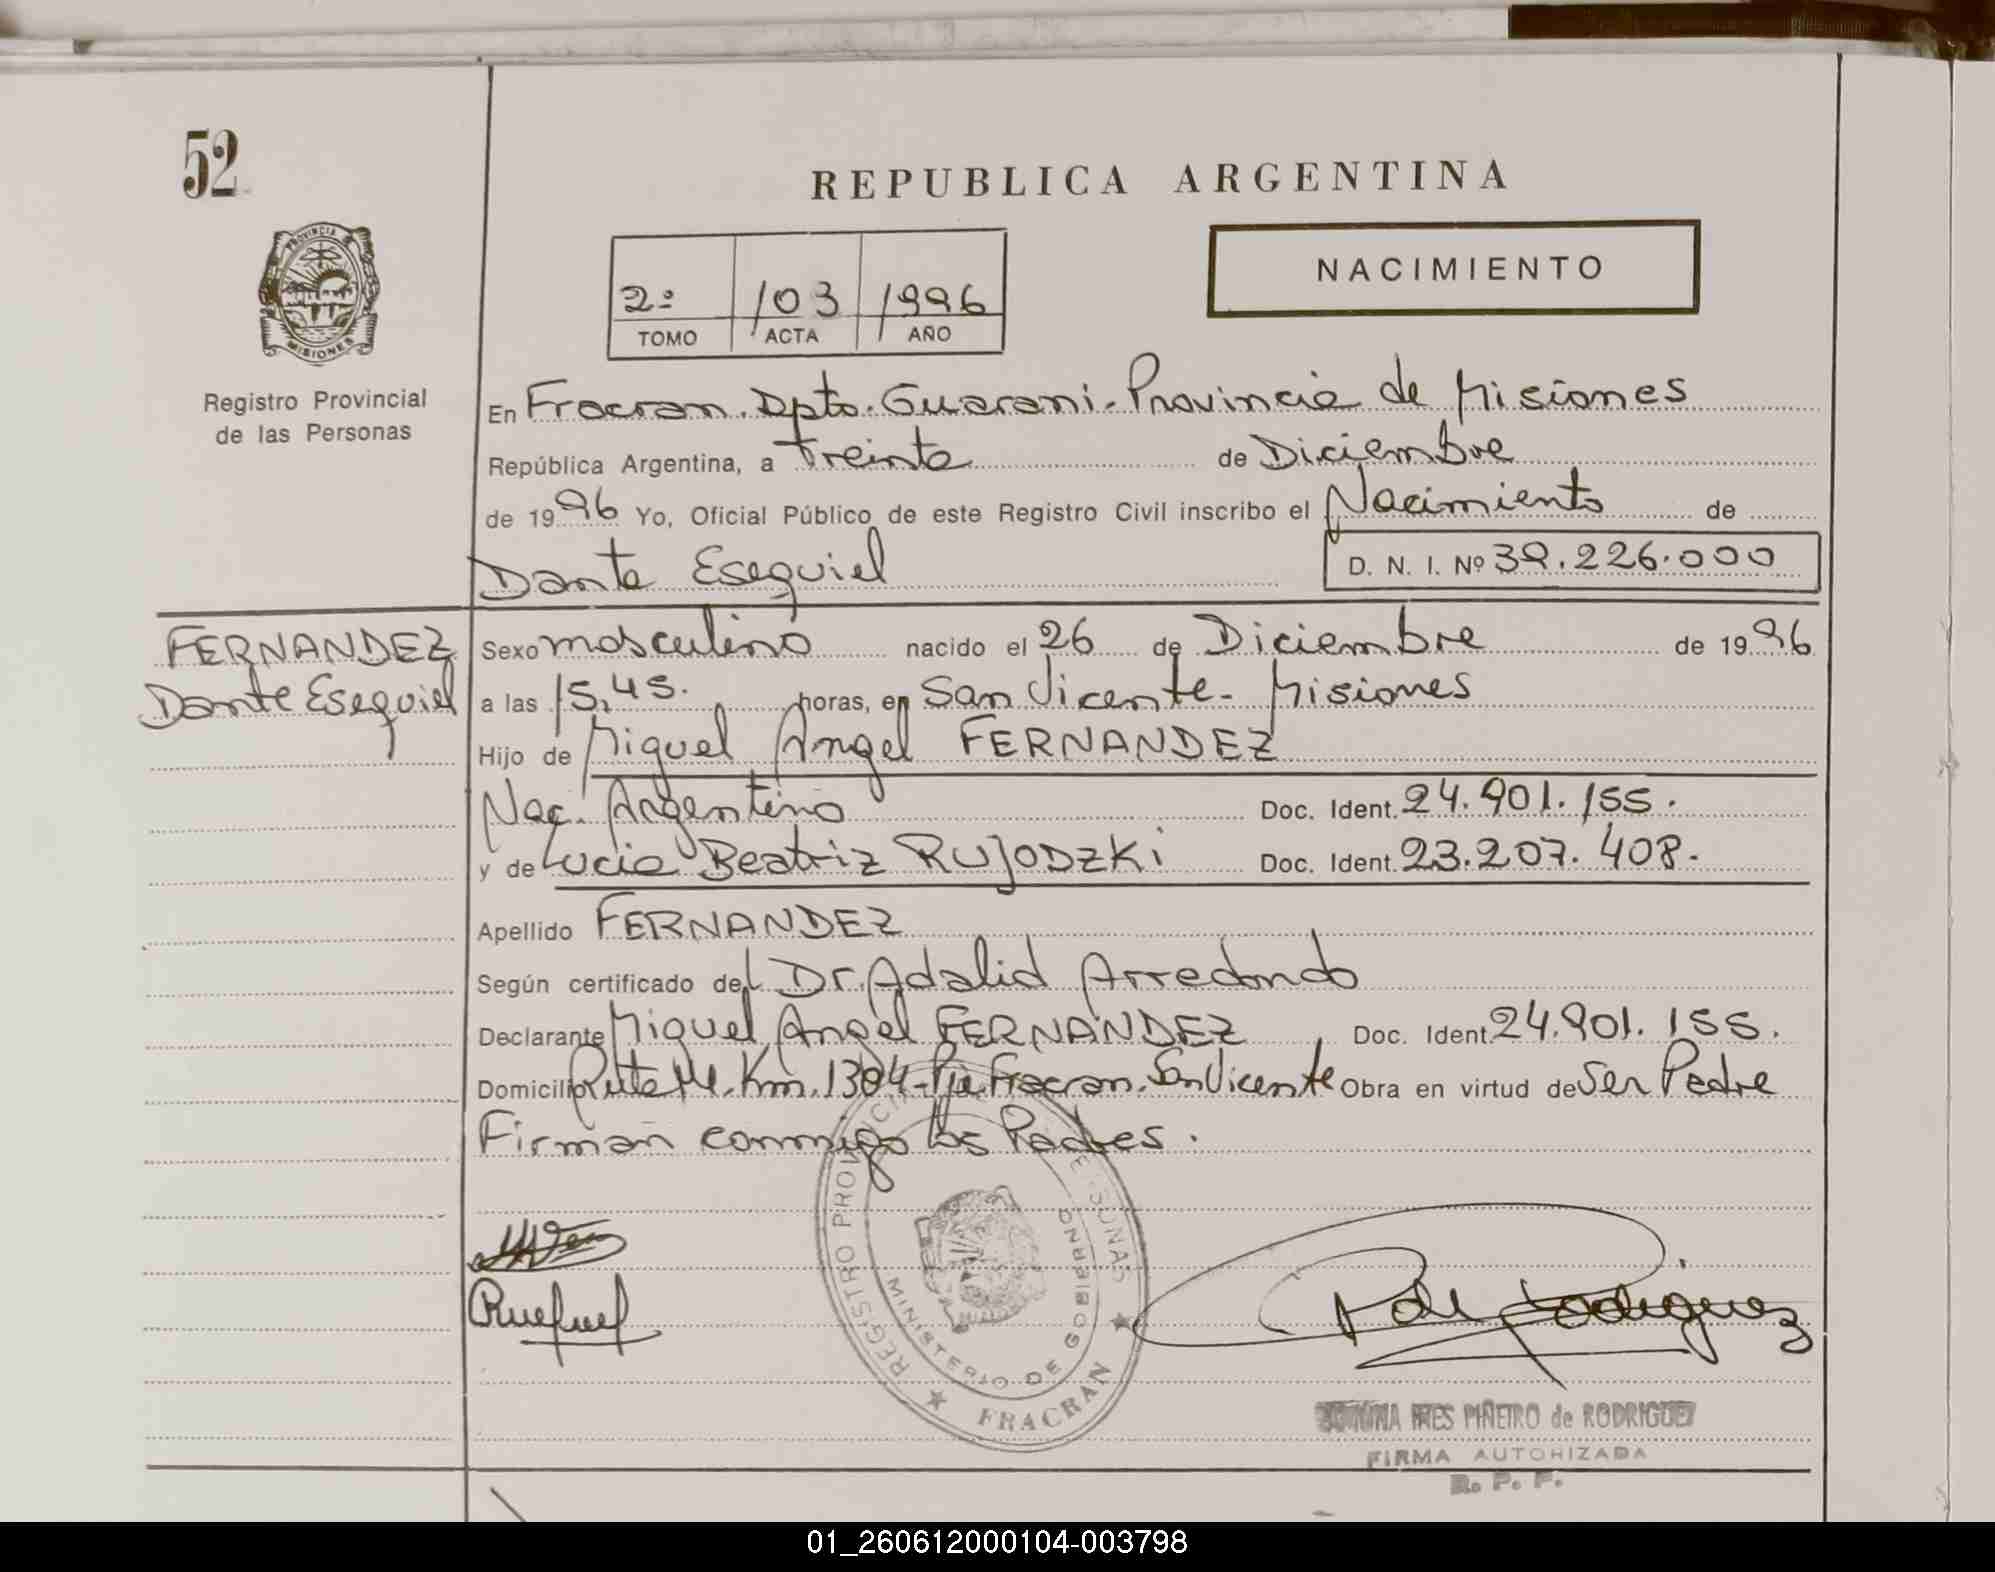 52
REPUBLICA ARGENTINA
NACIMIENTO
2º 103 1996
TOMO ACTA AÑO
PROVINCIA
MISIONES
Registro Provincial
de las Personas
En Fracran. Dpto. Guarani. Provincia de Misiones
República Argentina, a Treinta de Diciembre
de 1996 Yo, Oficial Público de este Registro Civil inscribo el Nacimiento de
Dante Esequiel D. N. I. Nº 39.226.000
FERNANDEZ
Dante Esequiel
Sexo masculino nacido el 26 de Diciembre de 1996
a las 15,45. horas, en San Vicente - Misiones
Hijo de Miguel Angel FERNANDEZ
Nac. Argentino Doc. Ident. 24.901.155.
y de Lucia Beatriz RUJODZKi Doc. Ident. 23.207.408.
Apellido FERNANDEZ
Según certificado del Dr. Adalid Arredondo
Declarante Miguel Angel FERNANDEZ Doc. Ident. 24.901.155.
Domicilio Ruta 14. Km. 1304 - Pje Fracran. San Vicente Obra en virtud de Ser Padre
Firman conmigo los Padres.
REGISTRO PROVINCIAL DE
MINISTERIO DE GOBIERNO
FRACRAN
P de Rodriguez
PIÑEIRO de RODRIGUEZ
FIRMA AUTORIZADA
R. P. P.
01_260612000104-003798